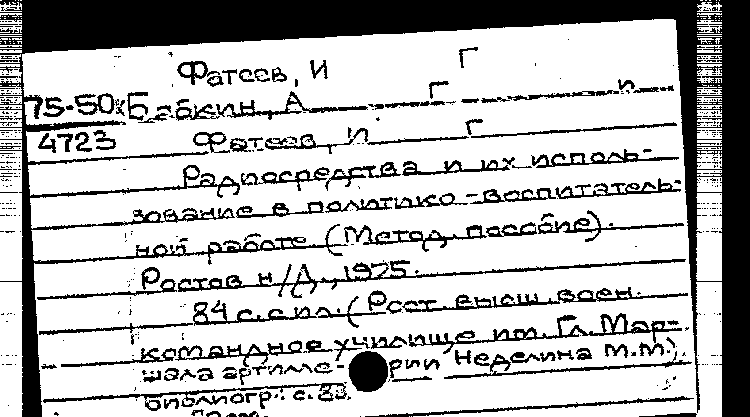 Фатеев, И Г
75-50к Бабкин, А Г и
4723 Фатеев, И Г
Радиосредства и их исполь-
зование в политико-воспитатель-
ной работе (Метод. пособие).
Ростов н/Д., 1975.
84 с. с ил. (Рост. высш. воен.
командное училище им. Гл. Мар-
шала артилле- рии Неделина М.М.).
Библиогр.: с. 83.